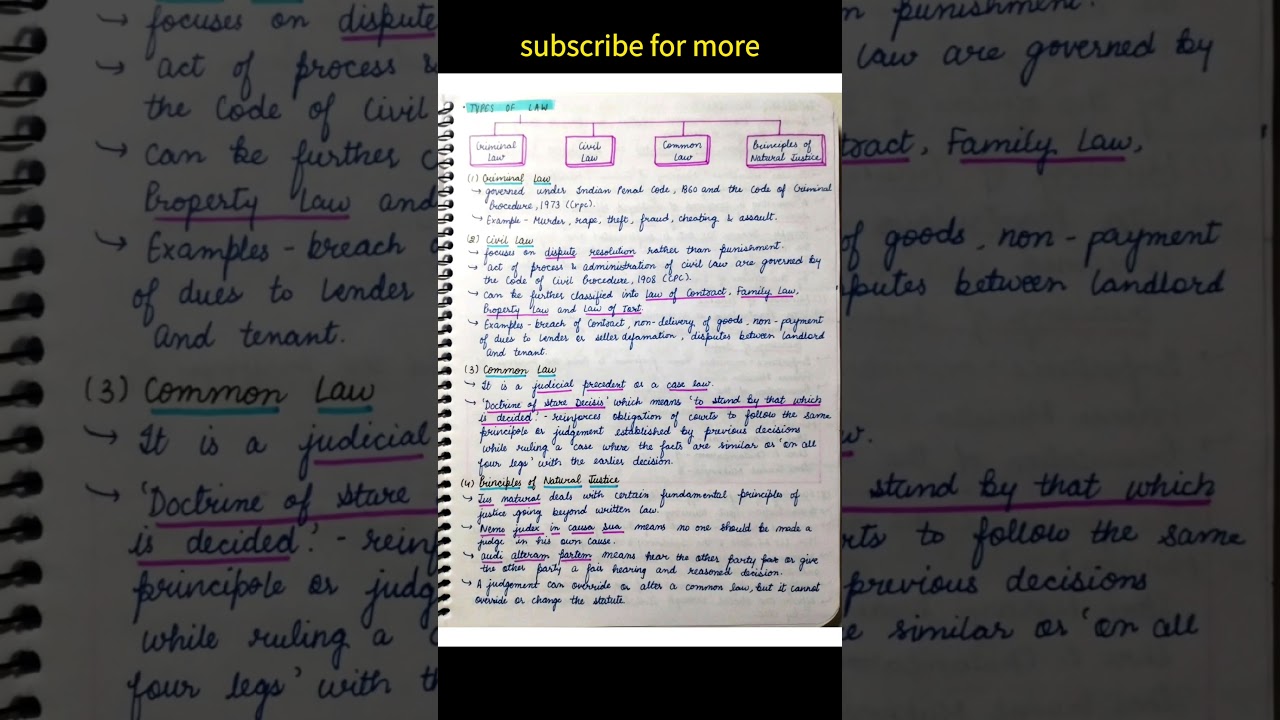 subscribe for more
TYPES OF LAW
Criminal Law
Civil Law
Common Law
Principles of Natural Justice
(1) Criminal Law
→ governed under Indian Penal Code, 1860 and the Code of Criminal
Procedure, 1973 (Crpc).
→ Example - Murder, rape, theft, fraud, cheating & assault.
(2) Civil Law
→ focuses on dispute resolution rather than punishment.
→ act of process & administration of civil law are governed by
the Code of Civil Procedure, 1908 (CPC).
→ can be further classified into law of Contract, Family Law,
Property Law and Law of Tort.
→ Examples - breach of Contract, non-delivery of goods, non-payment
of dues to lender or seller defamation, disputes between landlord
and tenant.
(3) Common Law
→ It is a judicial precedent or a case law.
→ 'Doctrine of Stare Decisis' which means 'to stand by that which
is decided'. - reinforces obligation of courts to follow the same
principole or judgement established by previous decisions
while ruling a case where the facts are similar or 'on all
four legs' with the earlier decision.
(4) Principles of Natural Justice
→ Jus natural deals with certain fundamental principles of
justice going beyond written law.
→ Nemo judex in causa sua means no one should be made a
judge in his own cause.
→ audi alteram partem means hear the other party or give
the other party a fair hearing and reasoned decision.
→ A judgement can override or alter a common law, but it cannot
override or change the statute.